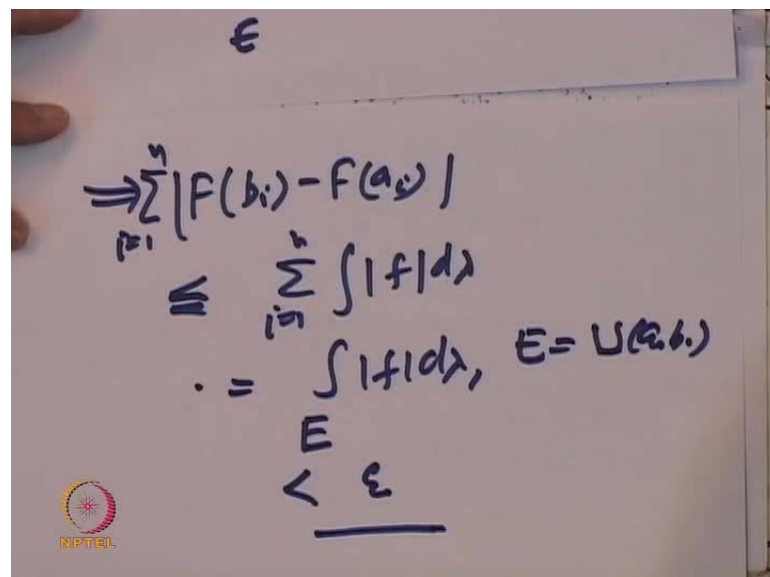 ϵ
⇒ n∑i=1 |F(bi) - F(ai)|
≤ n∑i=1 ∫|f|dλ
. = ∫E |f|dλ, E = ∪(ai bi)
< ε
NPTEL